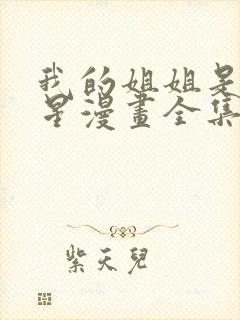 我的姐姐是
星漫畫全集
紫天兒